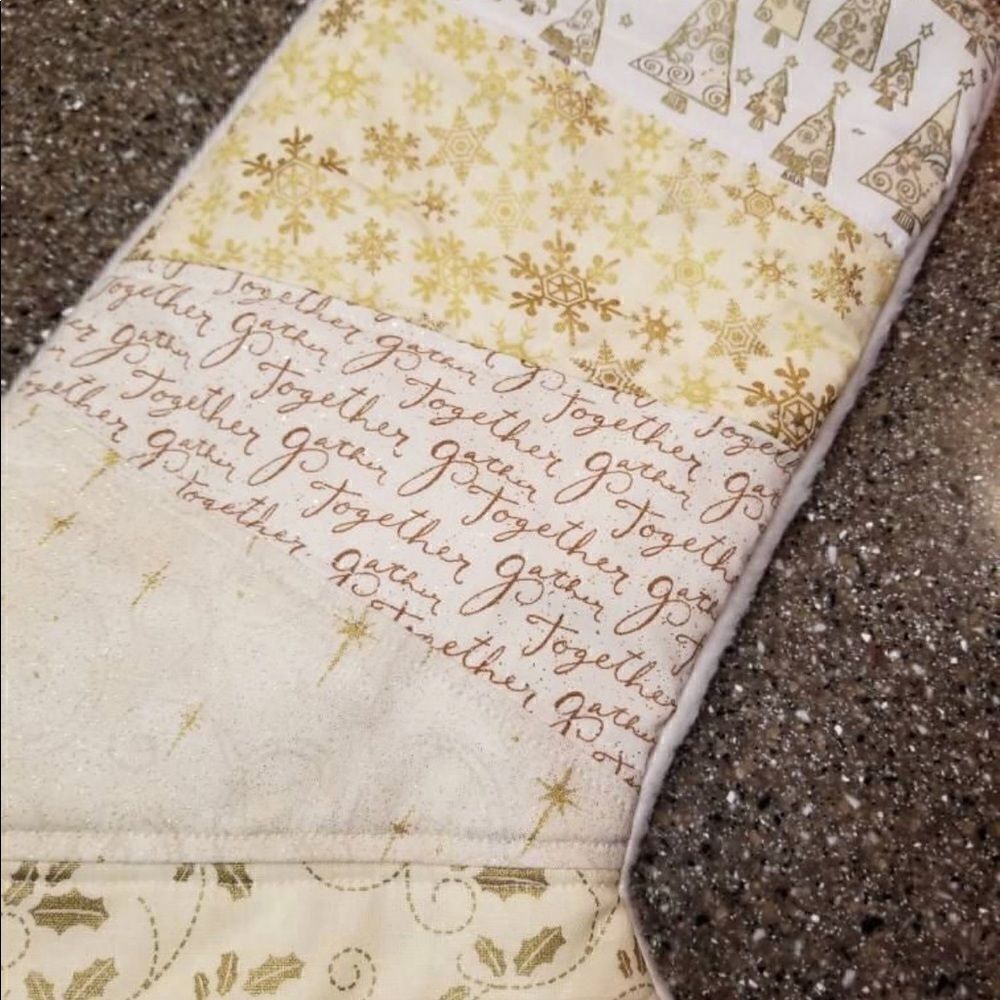 Together gather Together Together
Together gather gather Together gather
gather Together Together gather Together
Together gather gather Together gather
Together Together Together
gather gather Together
Together gather